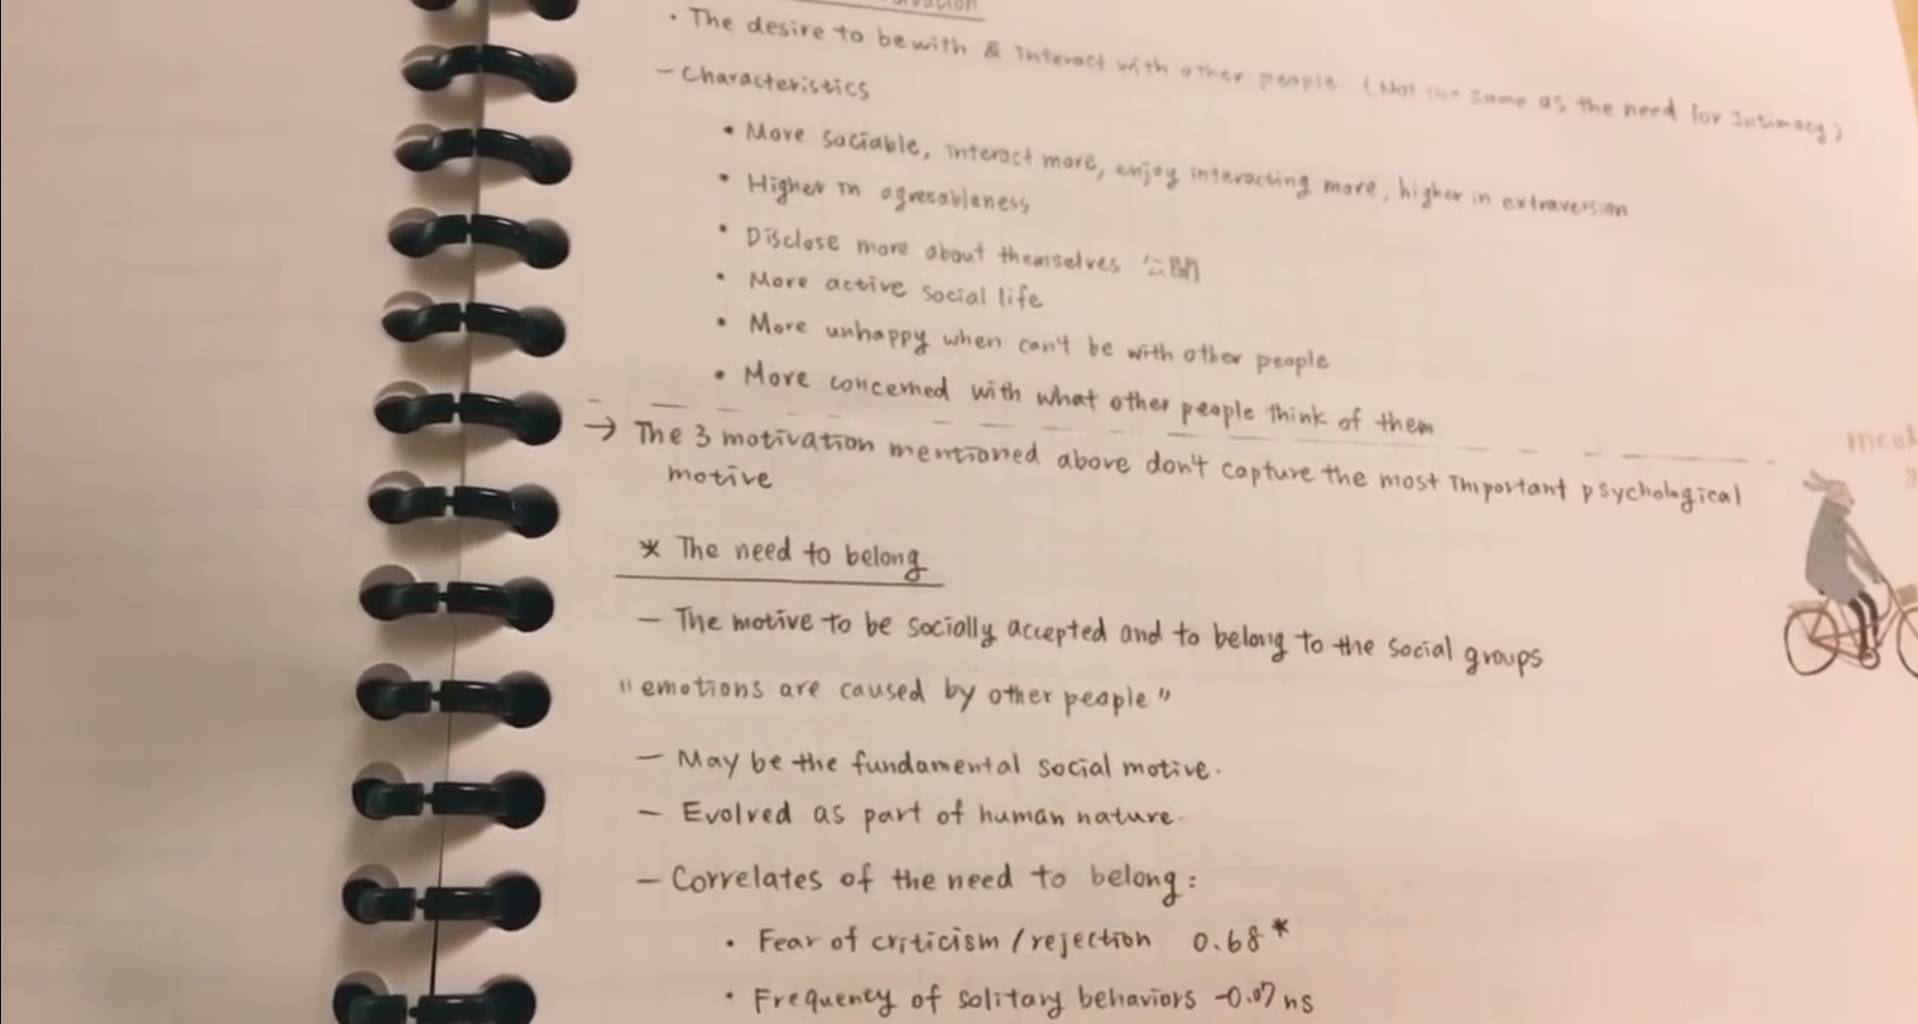 • The desire to be with & Interact with other people (Not the same as the need for Intimacy)
- Characteristics
• More sociable, interact more, enjoy interacting more, higher in extraversion
• Higher in agreeableness
• Disclose more about themselves 公開
• More active social life
• More unhappy when can't be with other people
• More concerned with what other people think of them
→ The 3 motivation mentioned above don't capture the most Important psychological
motive
* The need to belong
- The motive to be socially accepted and to belong to the social groups
"emotions are caused by other people"
- May be the fundamental social motive.
- Evolved as part of human nature.
- Correlates of the need to belong:
• Fear of criticism / rejection 0.68*
• Frequency of solitary behaviors -0.07 ns